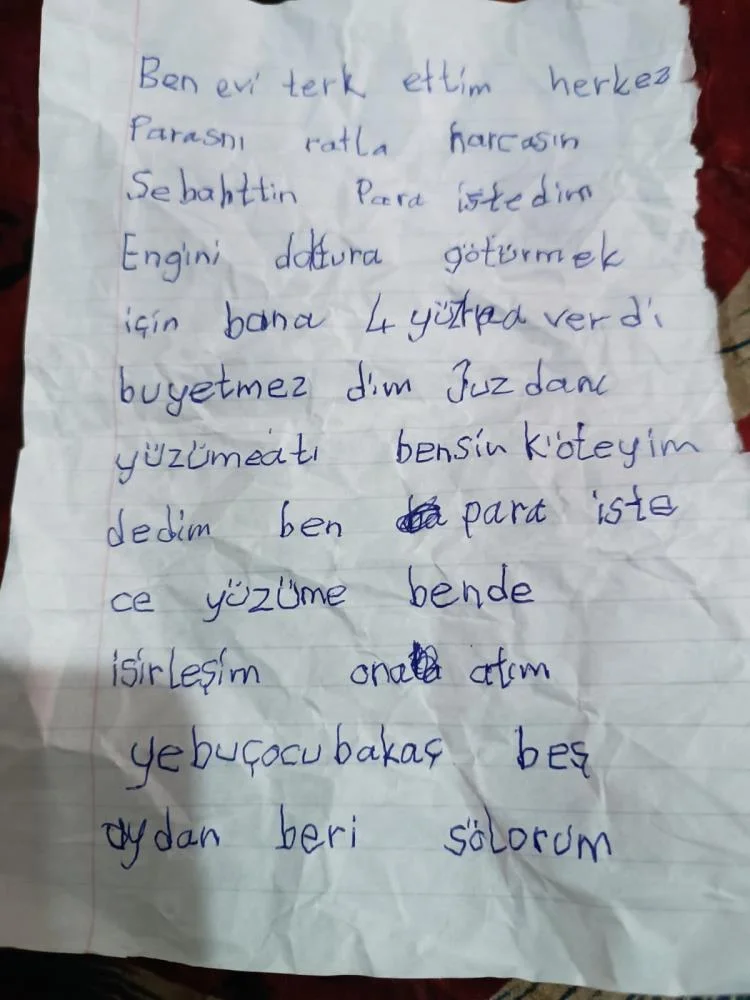 Ben evi terk ettim herkez
Parasnı ratla harcasın
Sebahttin Para istedim
Engini doktura götürmek
için bana 4 verdi
buyetmez dim Juzdanı
yüzümeatı bensin köteyim
dedim ben para iste
ce yüzüme bende
isirleşim ona atım
yebuçocubakaç beş
aydan beri sölorum